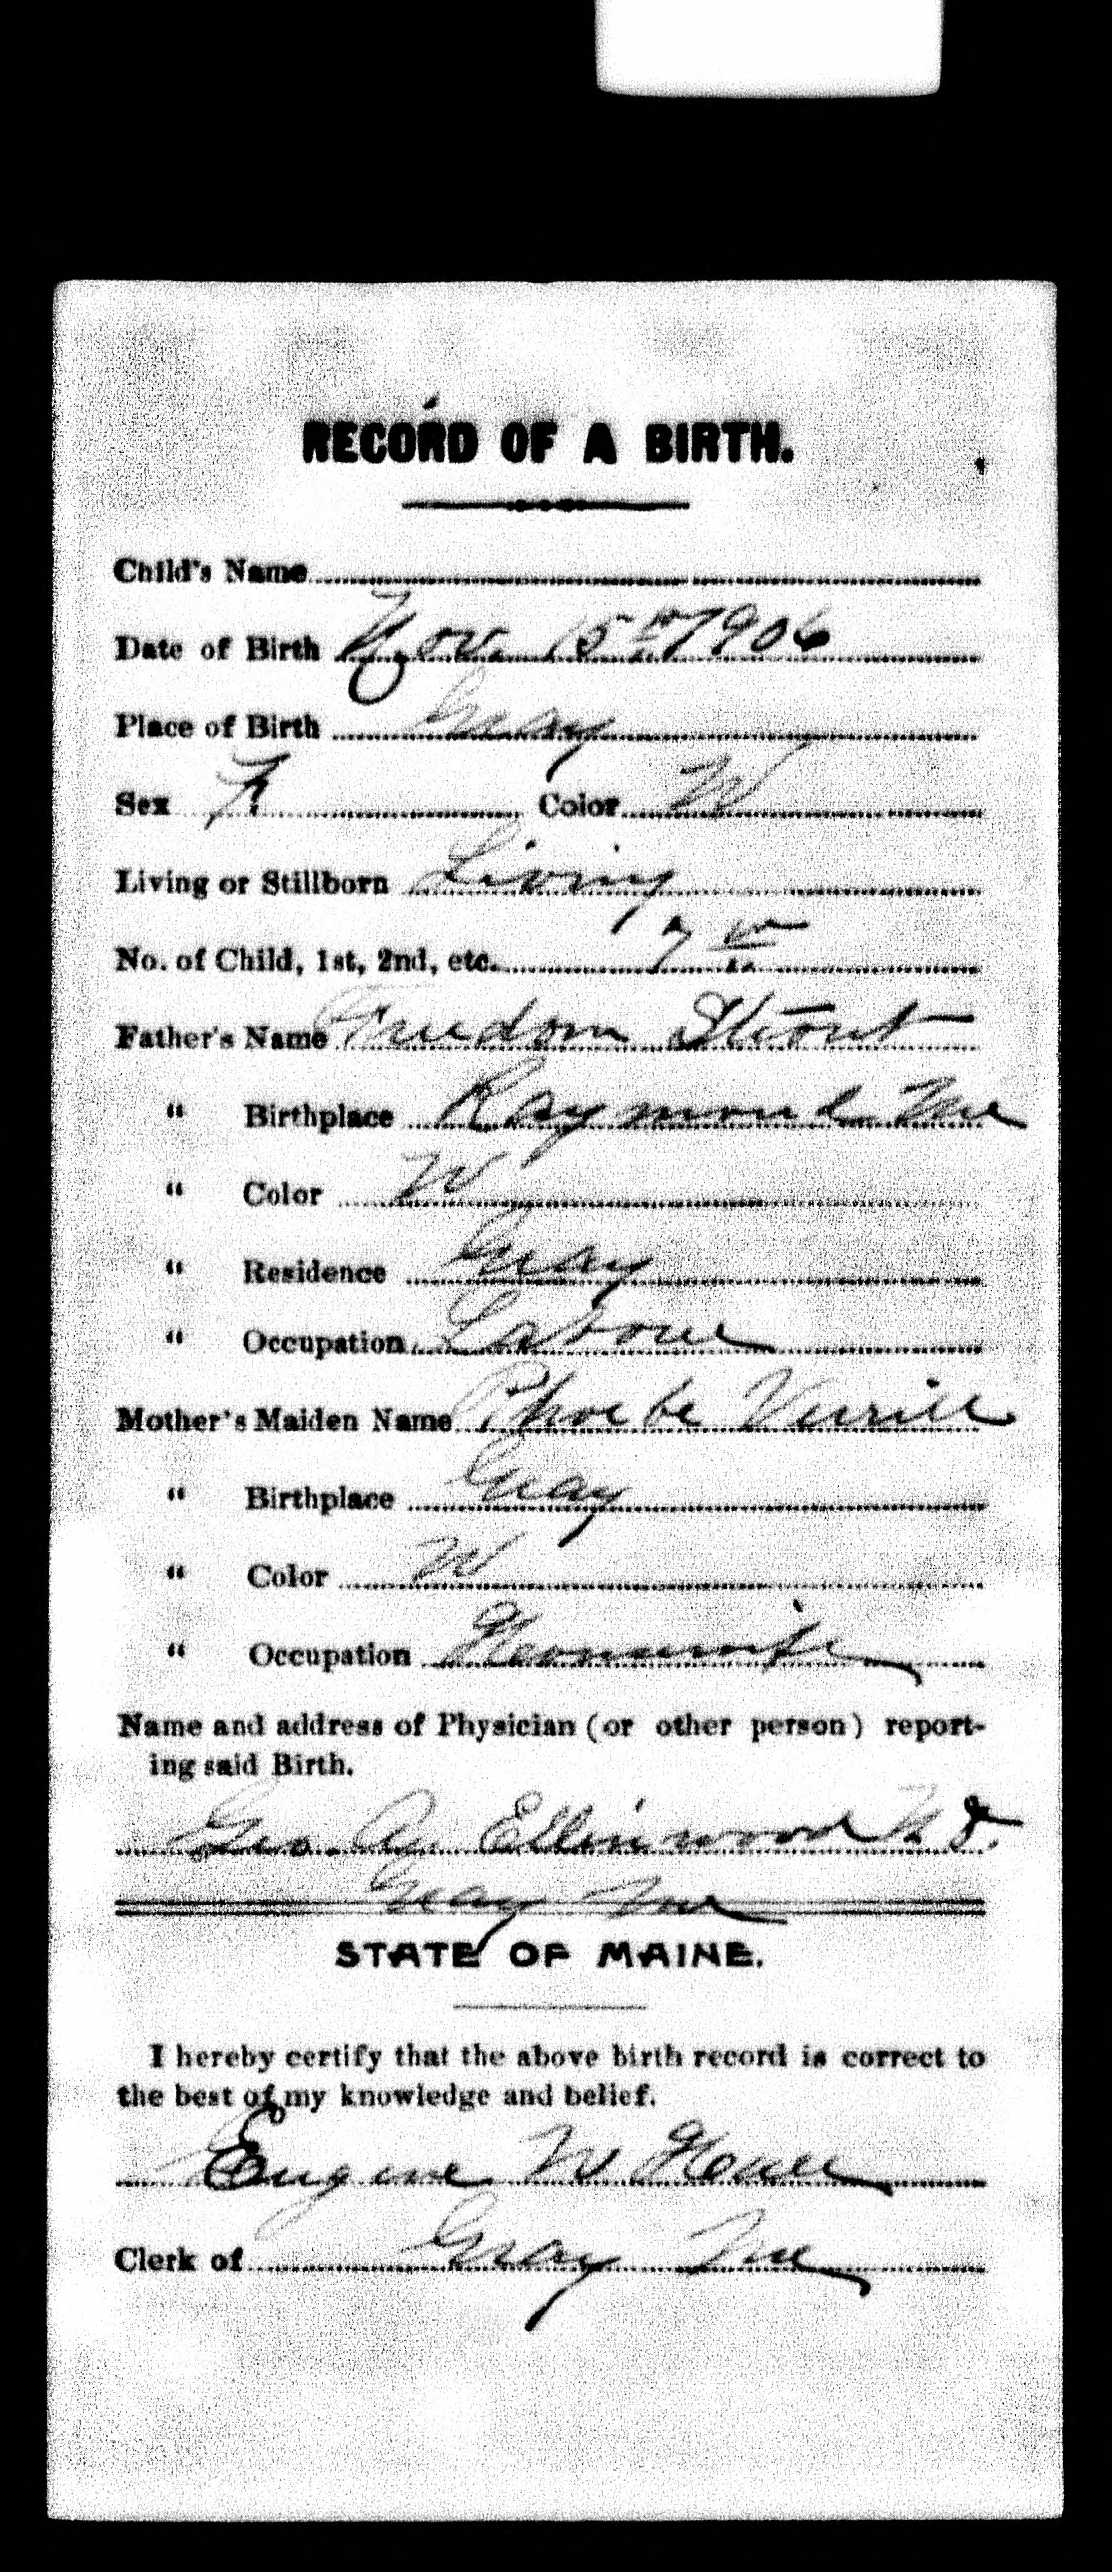 RECORD OF A BIRTH.
Child's Name
Date of Birth Nov. 15th 1906
Place of Birth Gray
Sex F. Color W
Living or Stillborn Living
No. of Child, 1st, 2nd, etc. 7th
Father's Name Freedom Strout
" Birthplace Raymond Me
" Color W
" Residence Gray
" Occupation Laborer
Mother's Maiden Name Phoebe Verrill
" Birthplace Gray
" Color W
" Occupation Housewife
Name and address of Physician (or other person) report-
ing said Birth.
Geo. Ellinwood M.D.
Gray Me
STATE OF MAINE.
I hereby certify that the above birth record is correct to
the best of my knowledge and belief.
Eugene W
Clerk of Gray Me